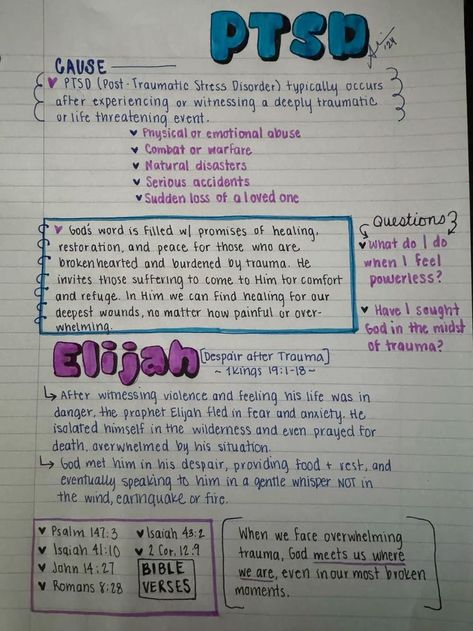 PTSD
'24
CAUSE
♥ PTSD (Post-Traumatic Stress Disorder) typically occurs
after experiencing or witnessing a deeply traumatic
or life threatening event.
♥ Physical or emotional abuse
♥ Combat or warfare
♥ Natural disasters
♥ Serious accidents
♥ Sudden loss of a loved one
♥ God's word is filled w/ promises of healing,
restoration, and peace for those who are
brokenhearted and burdened by trauma. He
invites those suffering to come to Him for comfort
and refuge. In Him we can find healing for our
deepest wounds, no matter how painful or over-
whelming.
Questions
♥ What do I do
when I feel
powerless?
♥ Have I sought
God in the midst
of trauma?
Elijah [Despair after Trauma]
~ 1 Kings 19:1-18 ~
↳ After witnessing violence and feeling his life was in
danger, the prophet Elijah fled in fear and anxiety. He
isolated himself in the wilderness and even prayed for
death, overwhelmed by his situation.
↳ God met him in his despair, providing food + rest, and
eventually speaking to him in a gentle whisper NOT in
the wind, earthquake or fire.
♥ Psalm 147:3
♥ Isaiah 41:10
♥ John 14:27
♥ Romans 8:28
♥ Isaiah 43:2
♥ 2 Cor. 12:9
BIBLE
VERSES
When we face overwhelming
trauma, God meets us where
we are, even in our most broken
moments.